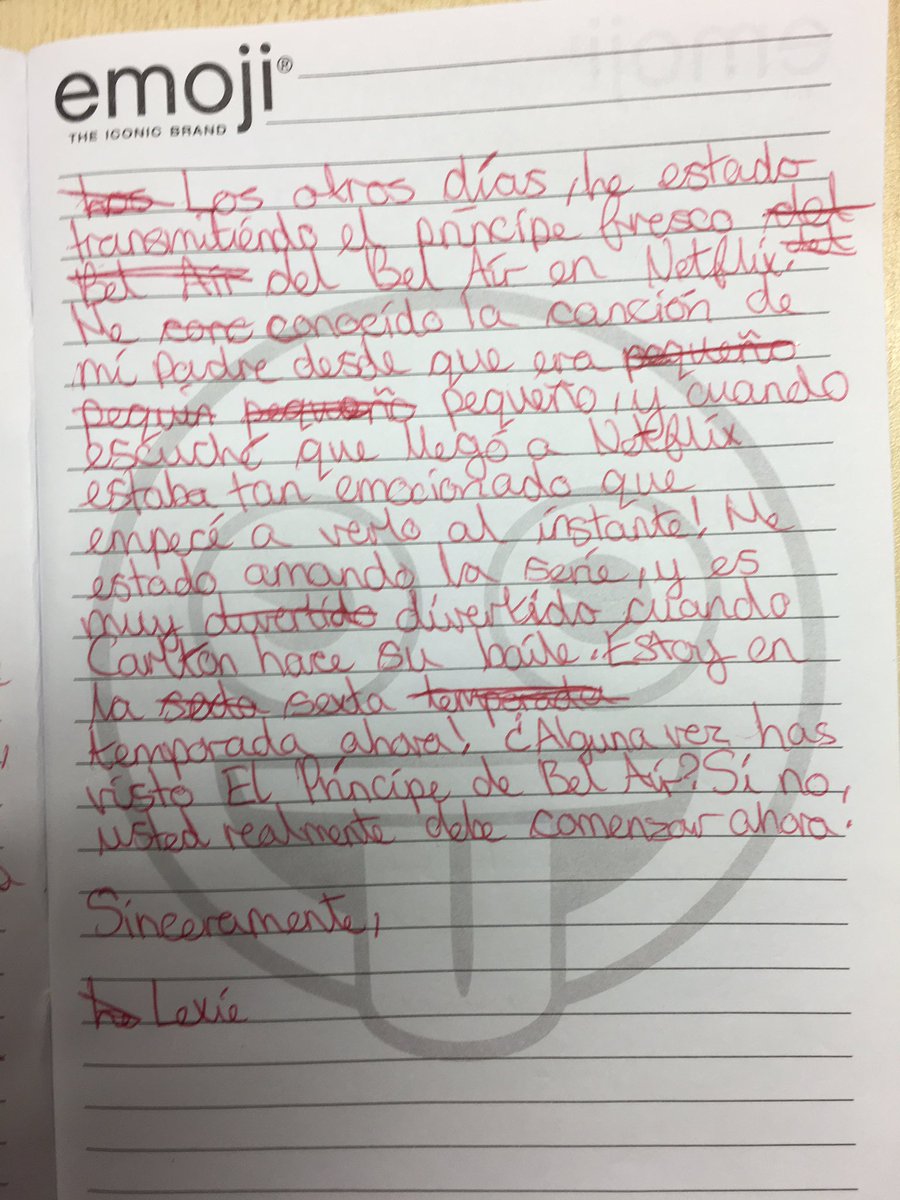 emoji®
THE ICONIC BRAND
Los Los otros días, he estado
transmitiendo el príncipe fresco del
Bel Air del Bel Air en Netflix. del
He conocido la canción de
mi padre desde que era pequeño
pequin pequeño pequeño, y cuando
escuché que llegó a Netflix
estaba tan emocionado que
empecé a verlo al instante! He
estado amando la serie, y es
muy divertido divertido cuando
Carlton hace su baile. Estoy en
la sexta sexta temporada
temporada ahora! ¿Alguna vez has
visto El Príncipe de Bel Air? Si no,
usted realmente debe comenzar ahora.
Sinceramente,
Lexie